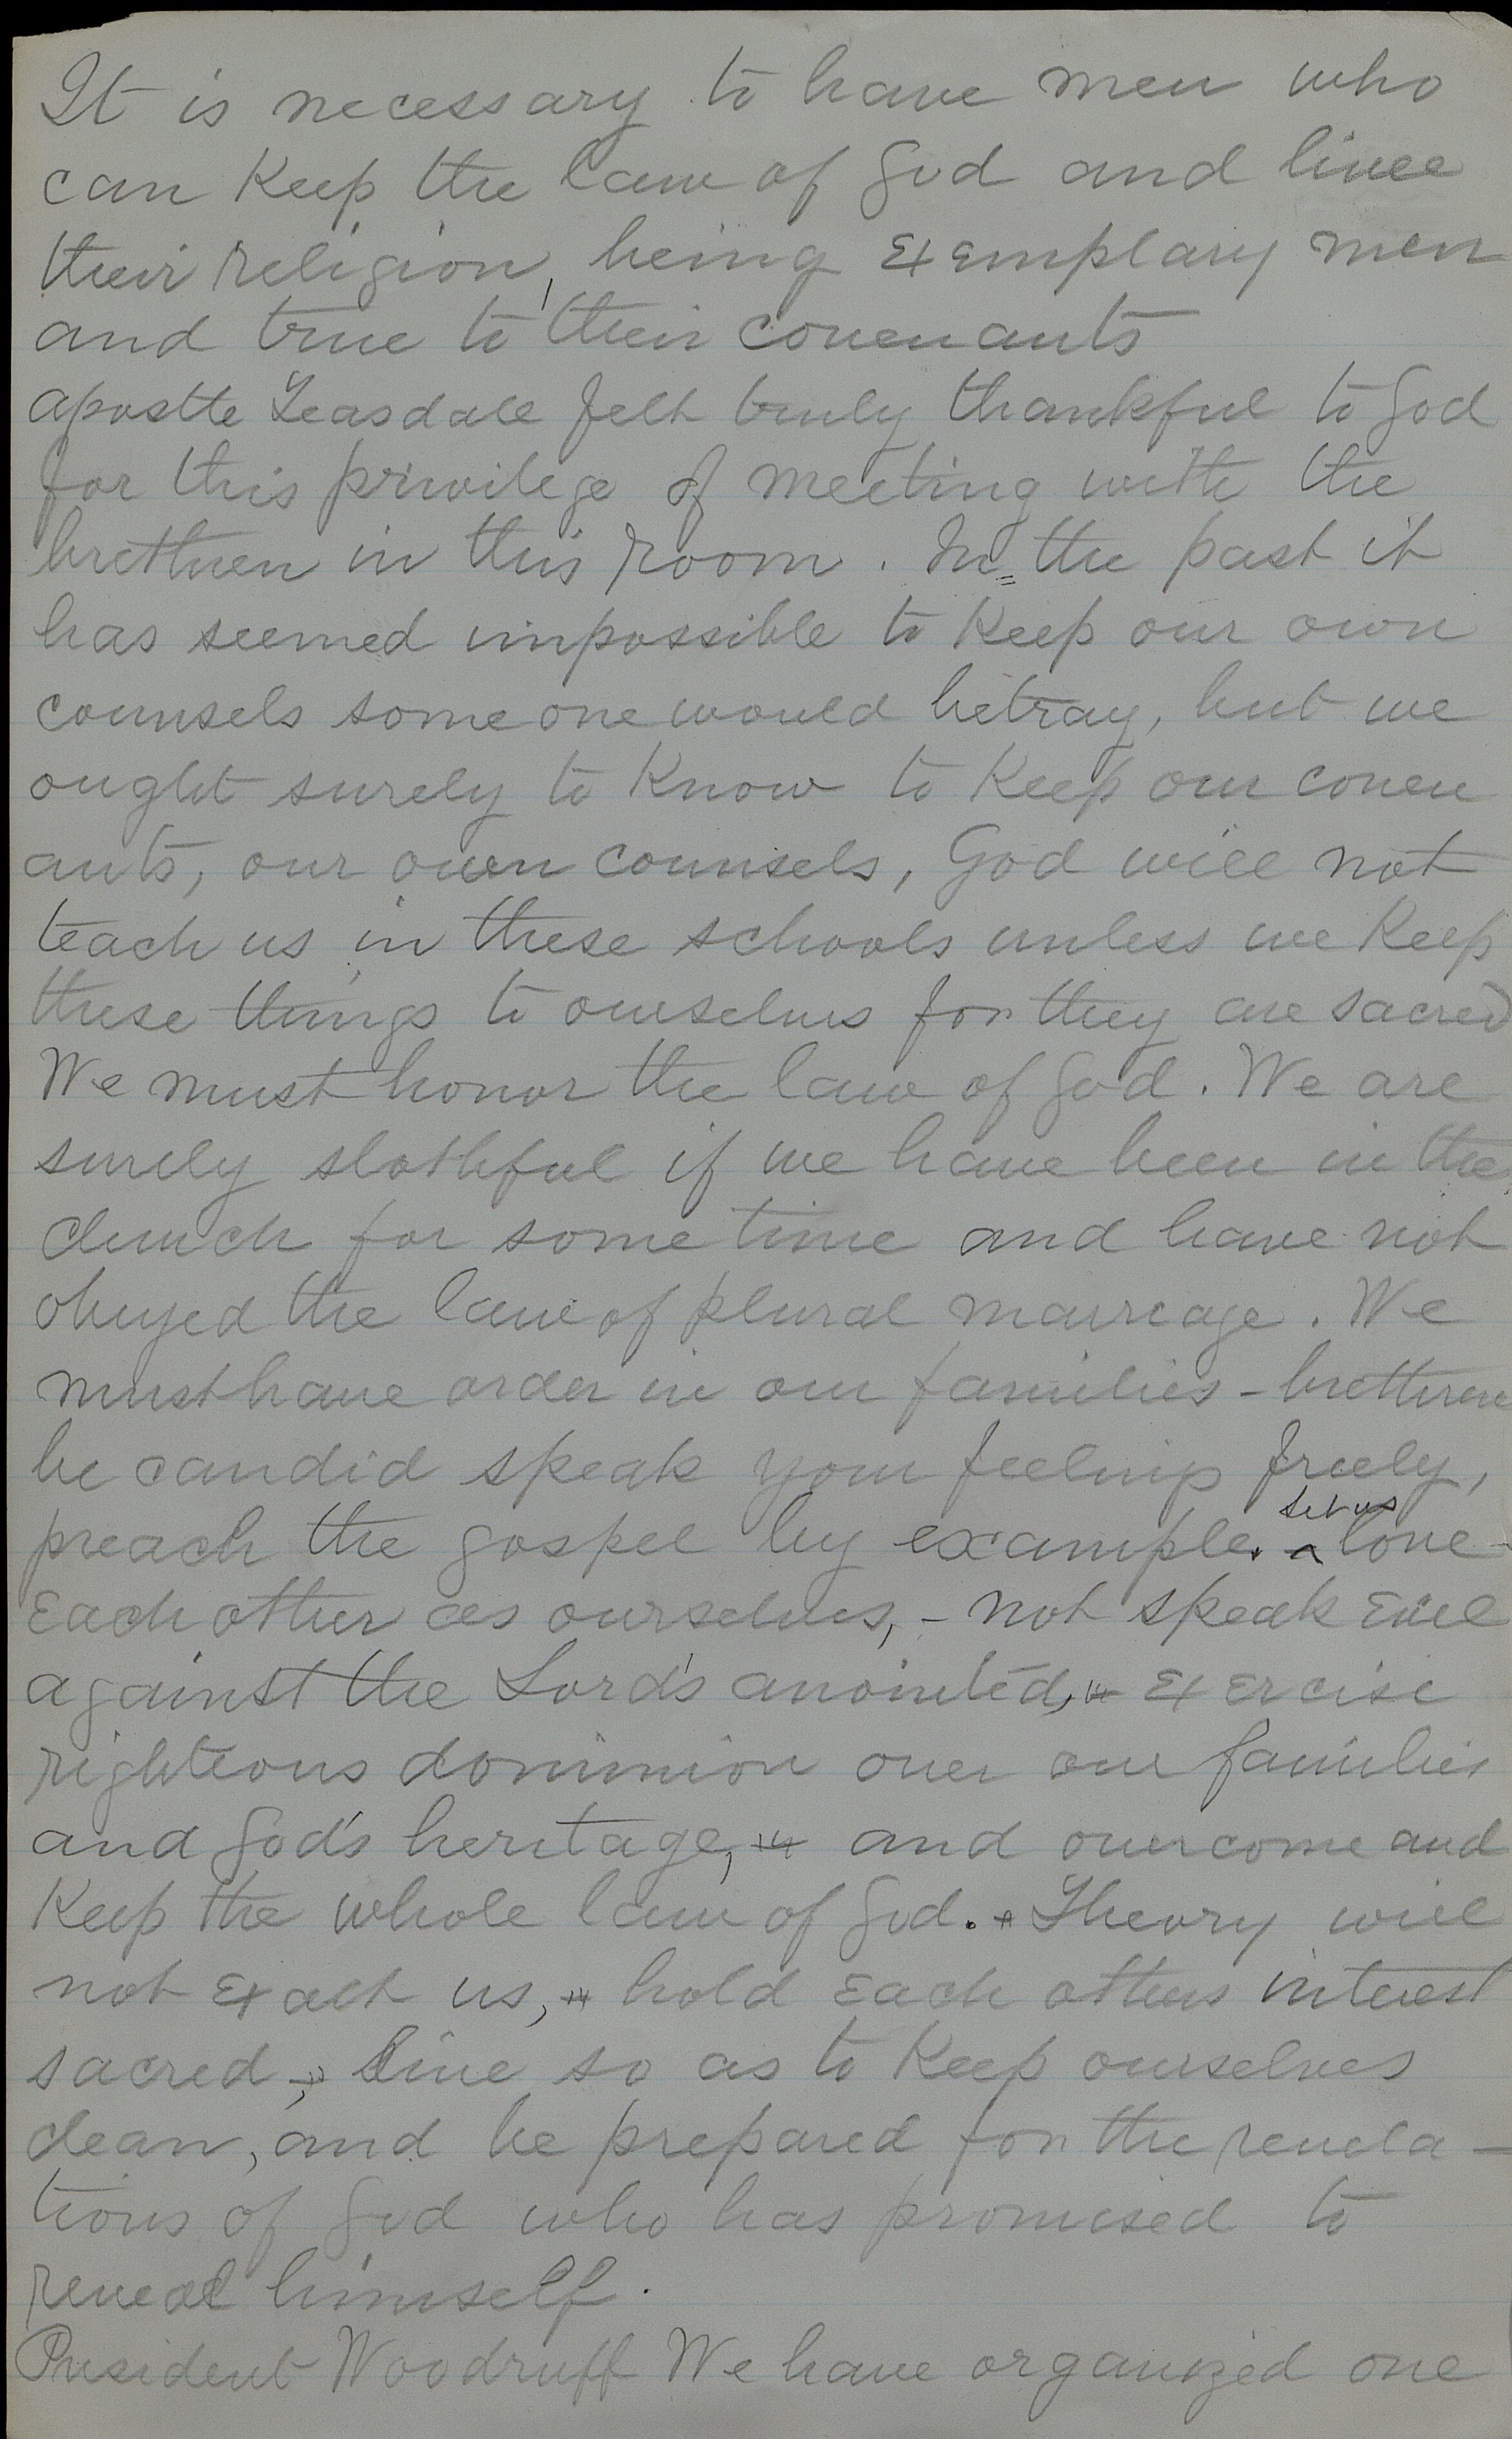 It is necessary to have men who
can Keep the law of God and live
their religion, being exemplary men
and true to their covenants
apostle Teasdale felt truly thankful to God
for this privilege of meeting with the
brethren in this room. In the past it
has seemed impossible to Keep our own
counsels some one would betray, but we
ought surely to Know to Keep our coven
ants, our own counsels, God will not
teach us in these schools unless we Keep
these things to ourselves for they are sacred
We must honor the law of God. We are
surely slothful if we have been in the
church for some time and have not
obeyed the law of plural marriage. We
must have order in our families - brethren
be candid speak your feelings freely,
preach the gospel by example. ^ let us love
Each other as ourselves, - not speak Evil
against the Lord's anointed, Exercise
righteous dominion over our families
and God's heritage, and overcome and
Keep the whole law of God. Theory will
not Exalt us, hold Each others interest
sacred, live so as to Keep ourselves
clean, and be prepared for the revela-
tions of God who has promised to
reveal himself.
President Woodruff We have organized one